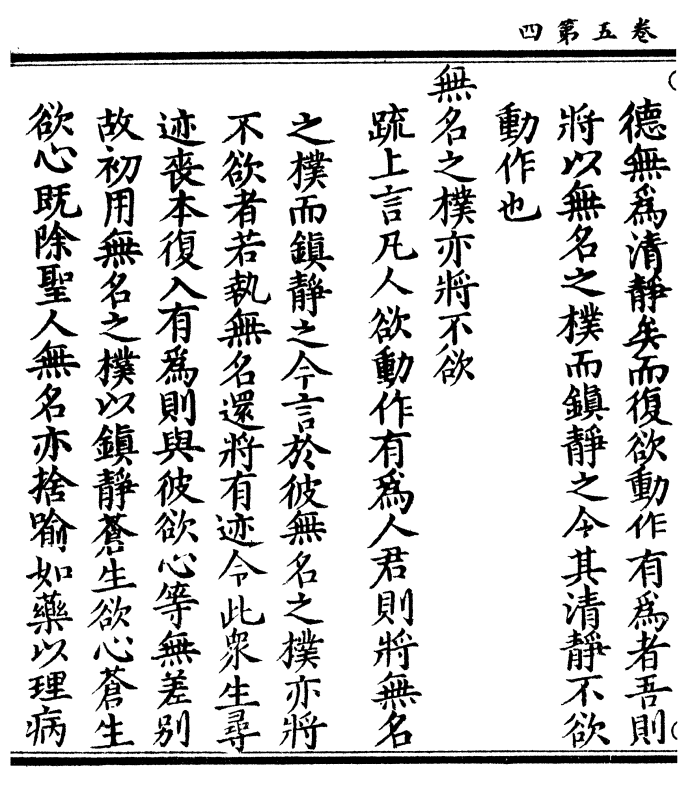 四第五卷
德無爲清靜矣而復欲動作有爲者吾則
將以無名之樸而鎮靜之令其清靜不欲
動作也
無名之樸亦將不欲
疏上言凡人欲動作有爲人君則將無名
之樸而鎮靜之今言於彼無名之樸亦將
不欲者若執無名還將有迹令此衆生尋
迹喪本復入有爲則與彼欲心等無差别
故初用無名之樸以鎮靜蒼生欲心蒼生
欲心既除聖人無名亦捨喻如藥以理病